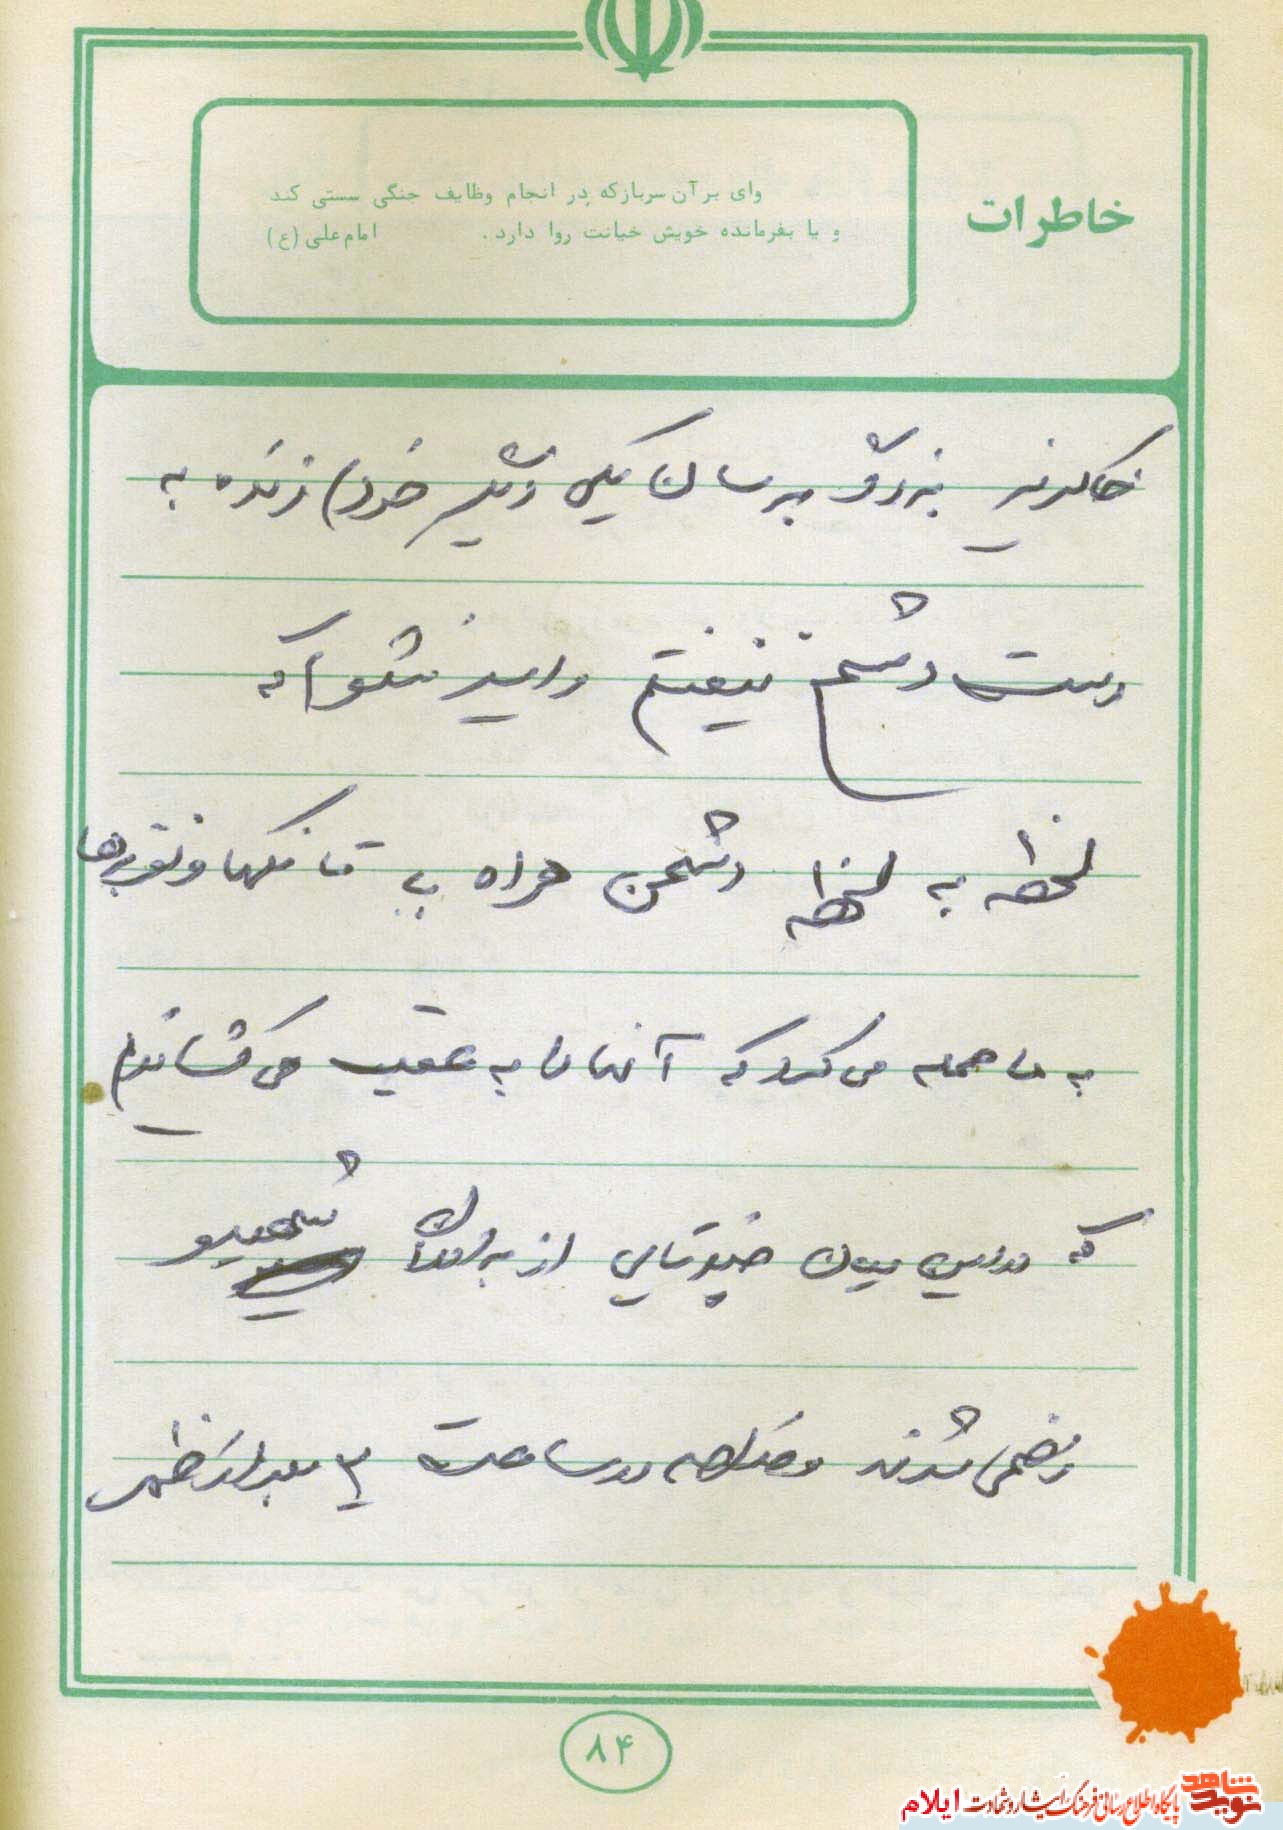 خاطرات
وای بر آن سرباز که در انجام وظایف جنگی سستی کند
و یا بفرمانده خویش خیانت روا دارد. امام علی (ع)
خاکریز برسان یکی تیر خوردم زنده به
دست دشمن نیفتم و اسیر نشوم که
لحظه به لحظه دشمن همراه با تانکها و نفربرها
به ما حمله می کرد که آنها را به عقب می کشاندیم
که در این میان چند تایی از برادران شهید و
زخمی شدند و خلاصه در ساعت ۳ بعد از ظهر
۸۴
نوید شاهد
پایگاه اطلاع رسانی فرهنگ ایثار و شهادت ایلام